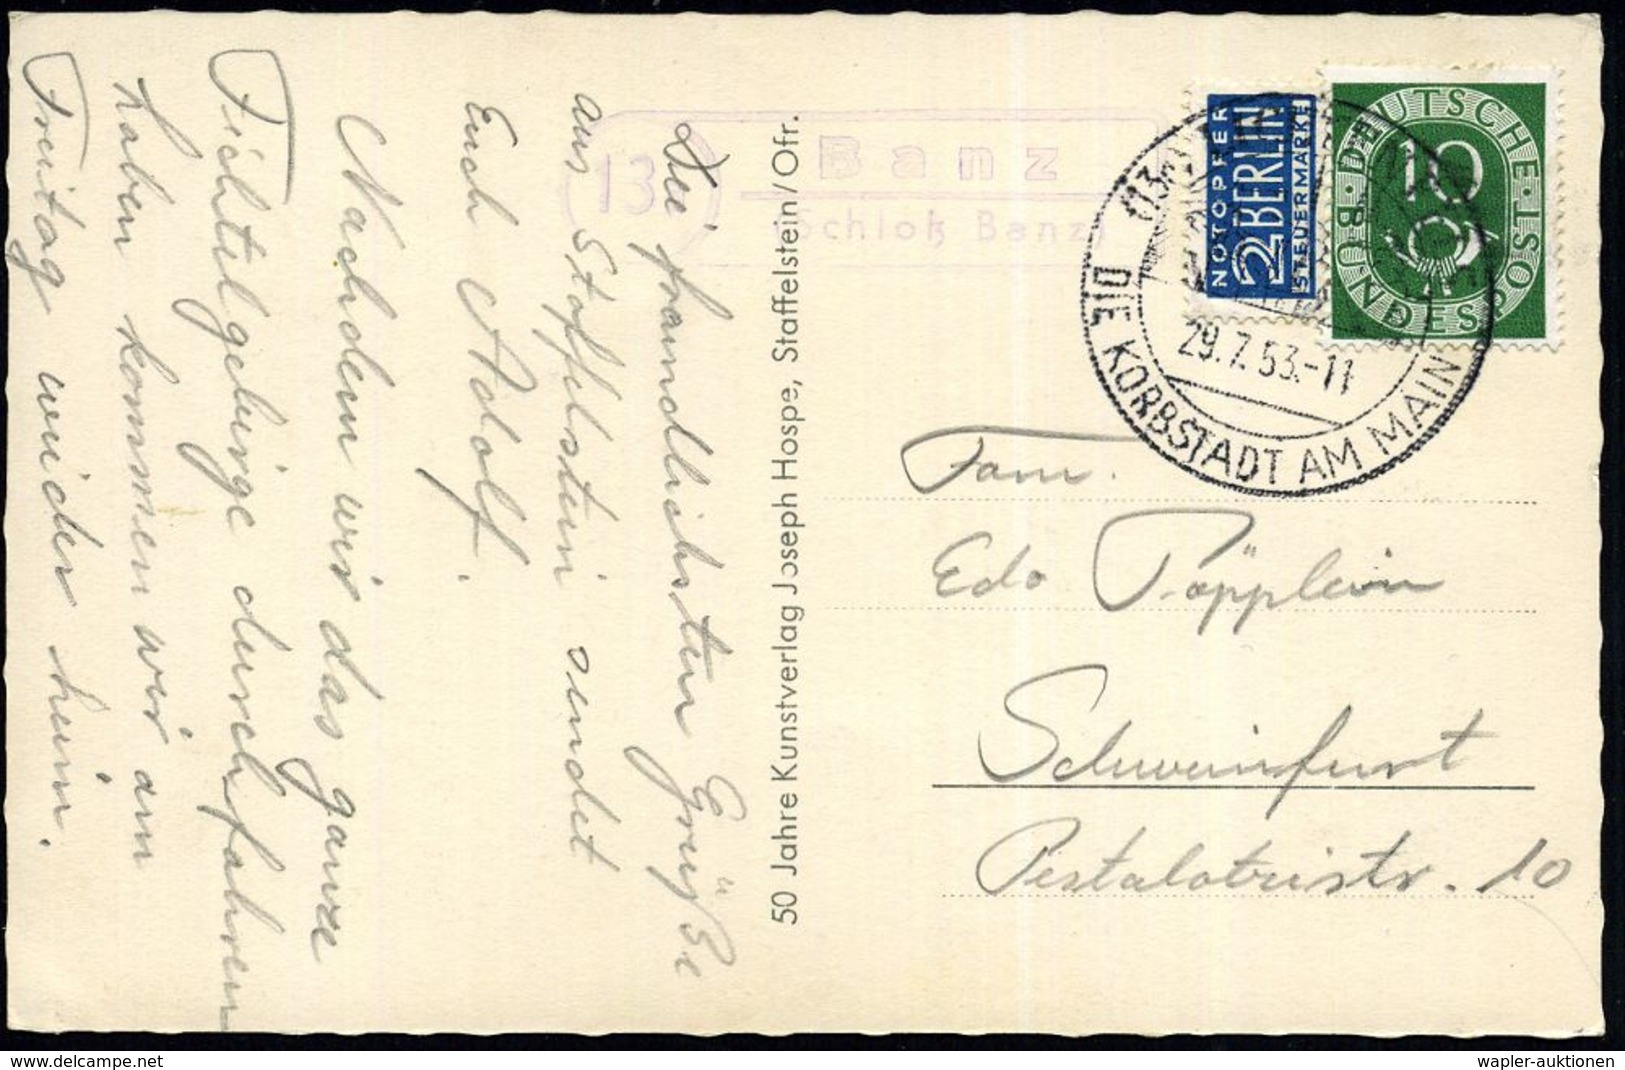 Die freundlichsten Grüße
aus Staffelstein sendet
Euch Adolf.
Nachdem wir das ganze
Fichtelgebirge durchfahren
haben kommen wir am
Freitag wieder heim.
50 Jahre Kunstverlag Joseph Hospe, Staffelstein/Ofr.
13
Banz
(Schloß Banz)
NOTOPFER
2 BERLIN
STEUERMARKE
DEUTSCHE BUNDESPOST
10
(13a)
29.7.53.-11
DIE KORBSTADT AM MAIN
Fam.
Edo Pöpplein
Schweinfurt
Pestalozzistr. 10
delcampe.net
wapler-auktionen